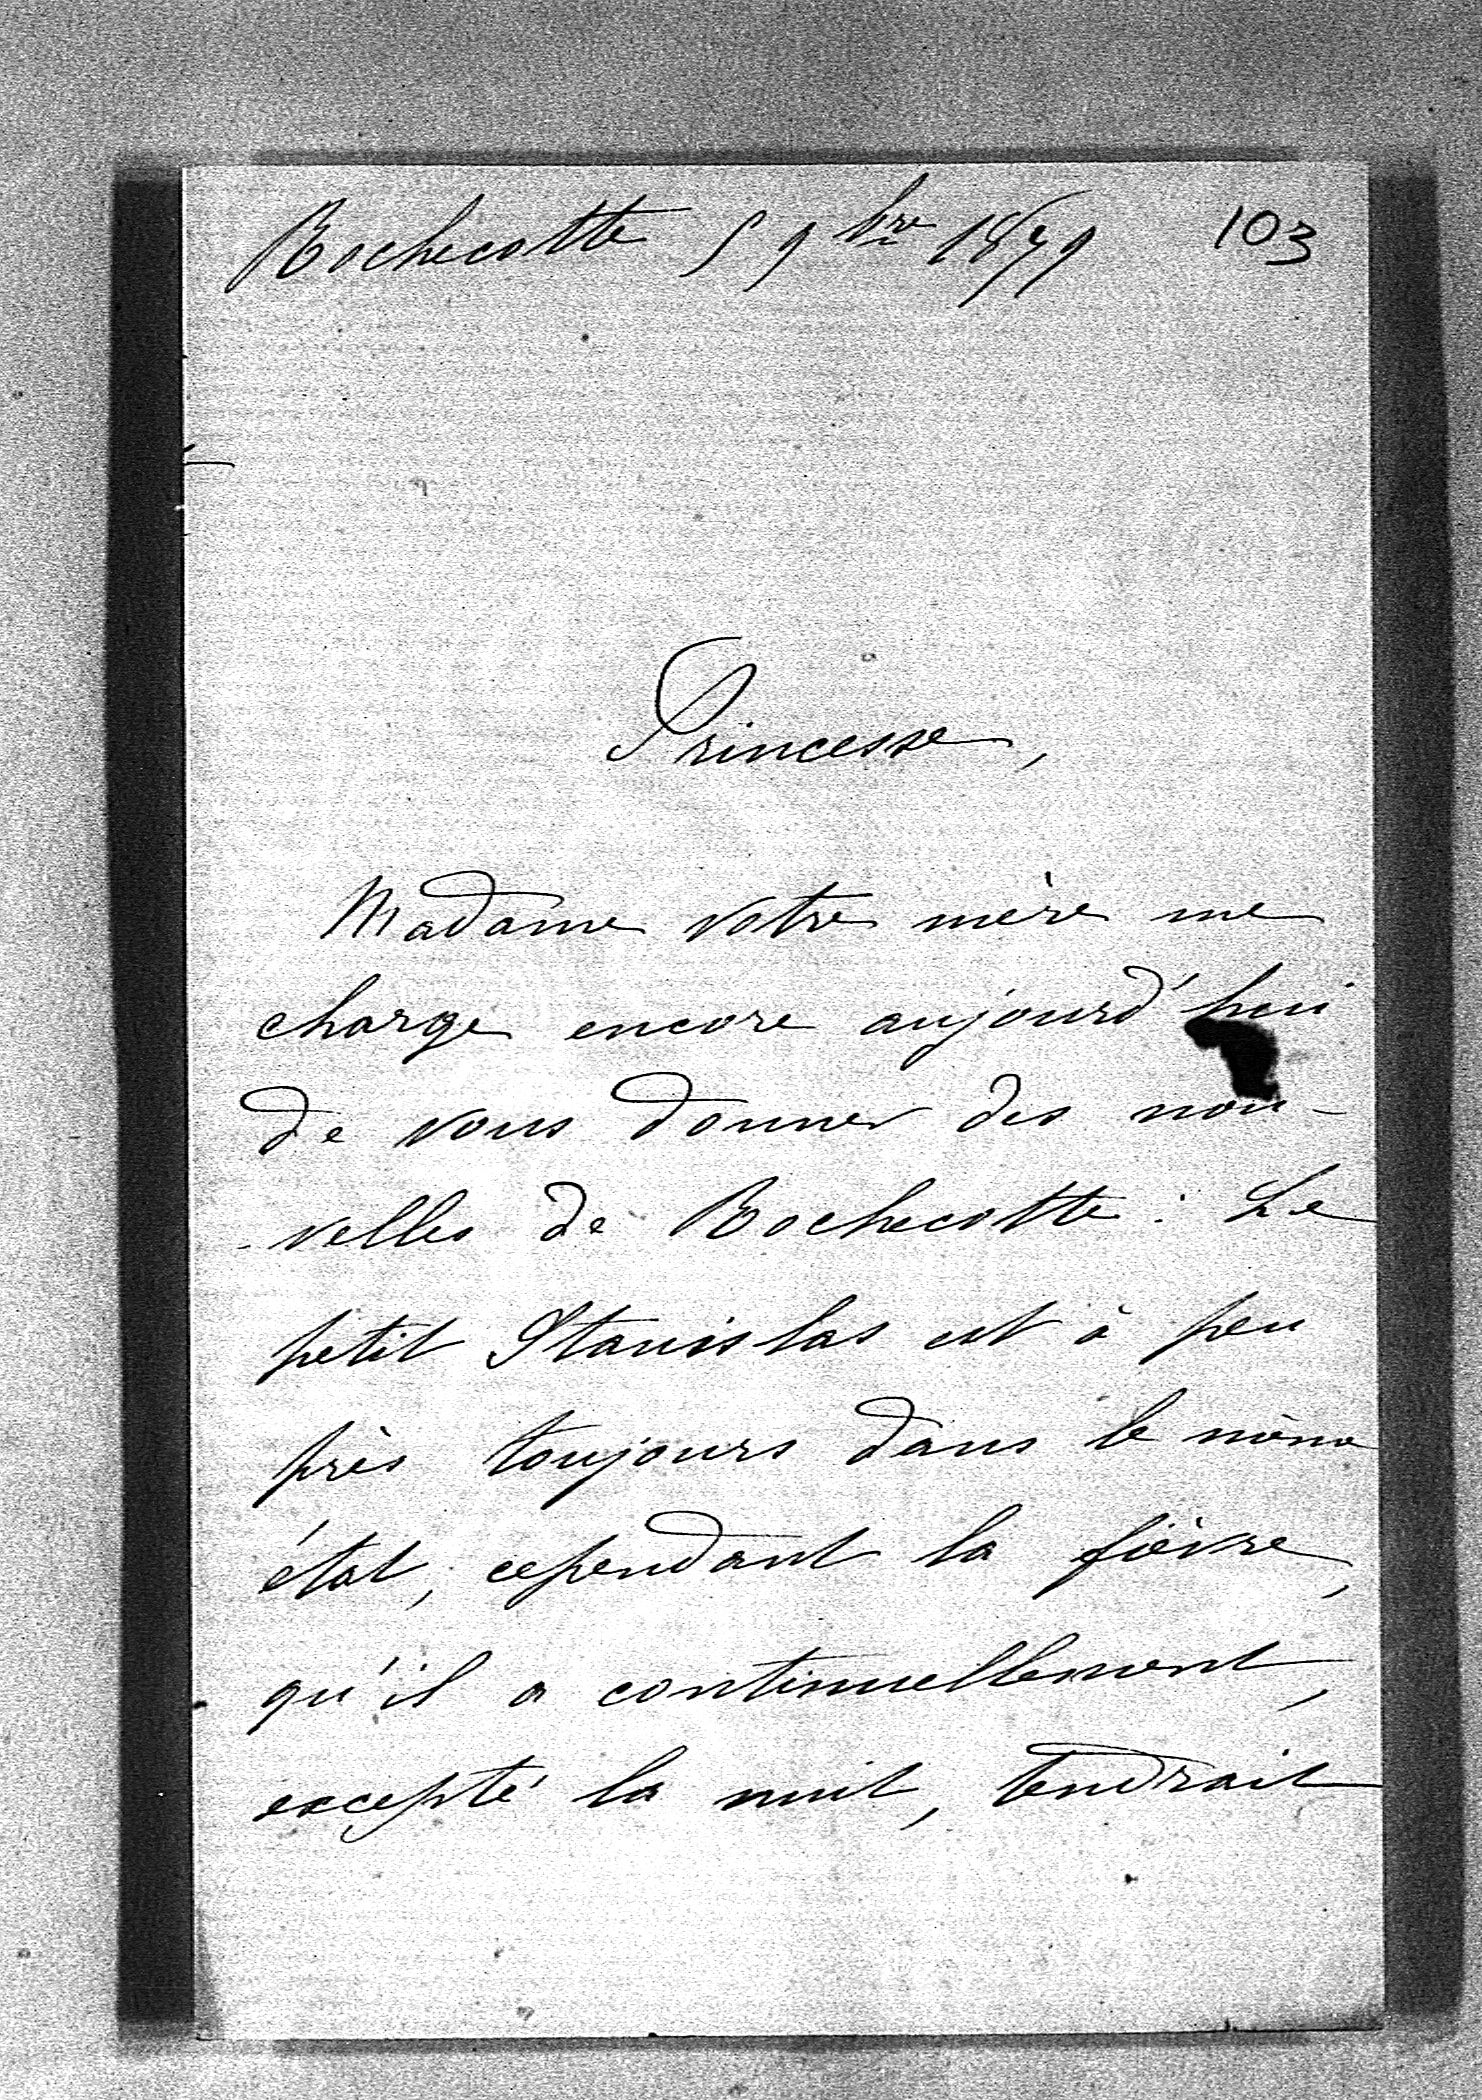 Rochecotte 5 9bre 1879 103
Princesse,
Madame votre mère me
charge encore aujourd'hui
de vous donner des nou-
-velles de Rochecotte : Le
petit Stanislas est à peu
près toujours dans le même
état, cependant la fièvre,
qu'il a continuellement,
excepté la nuit, tendrait